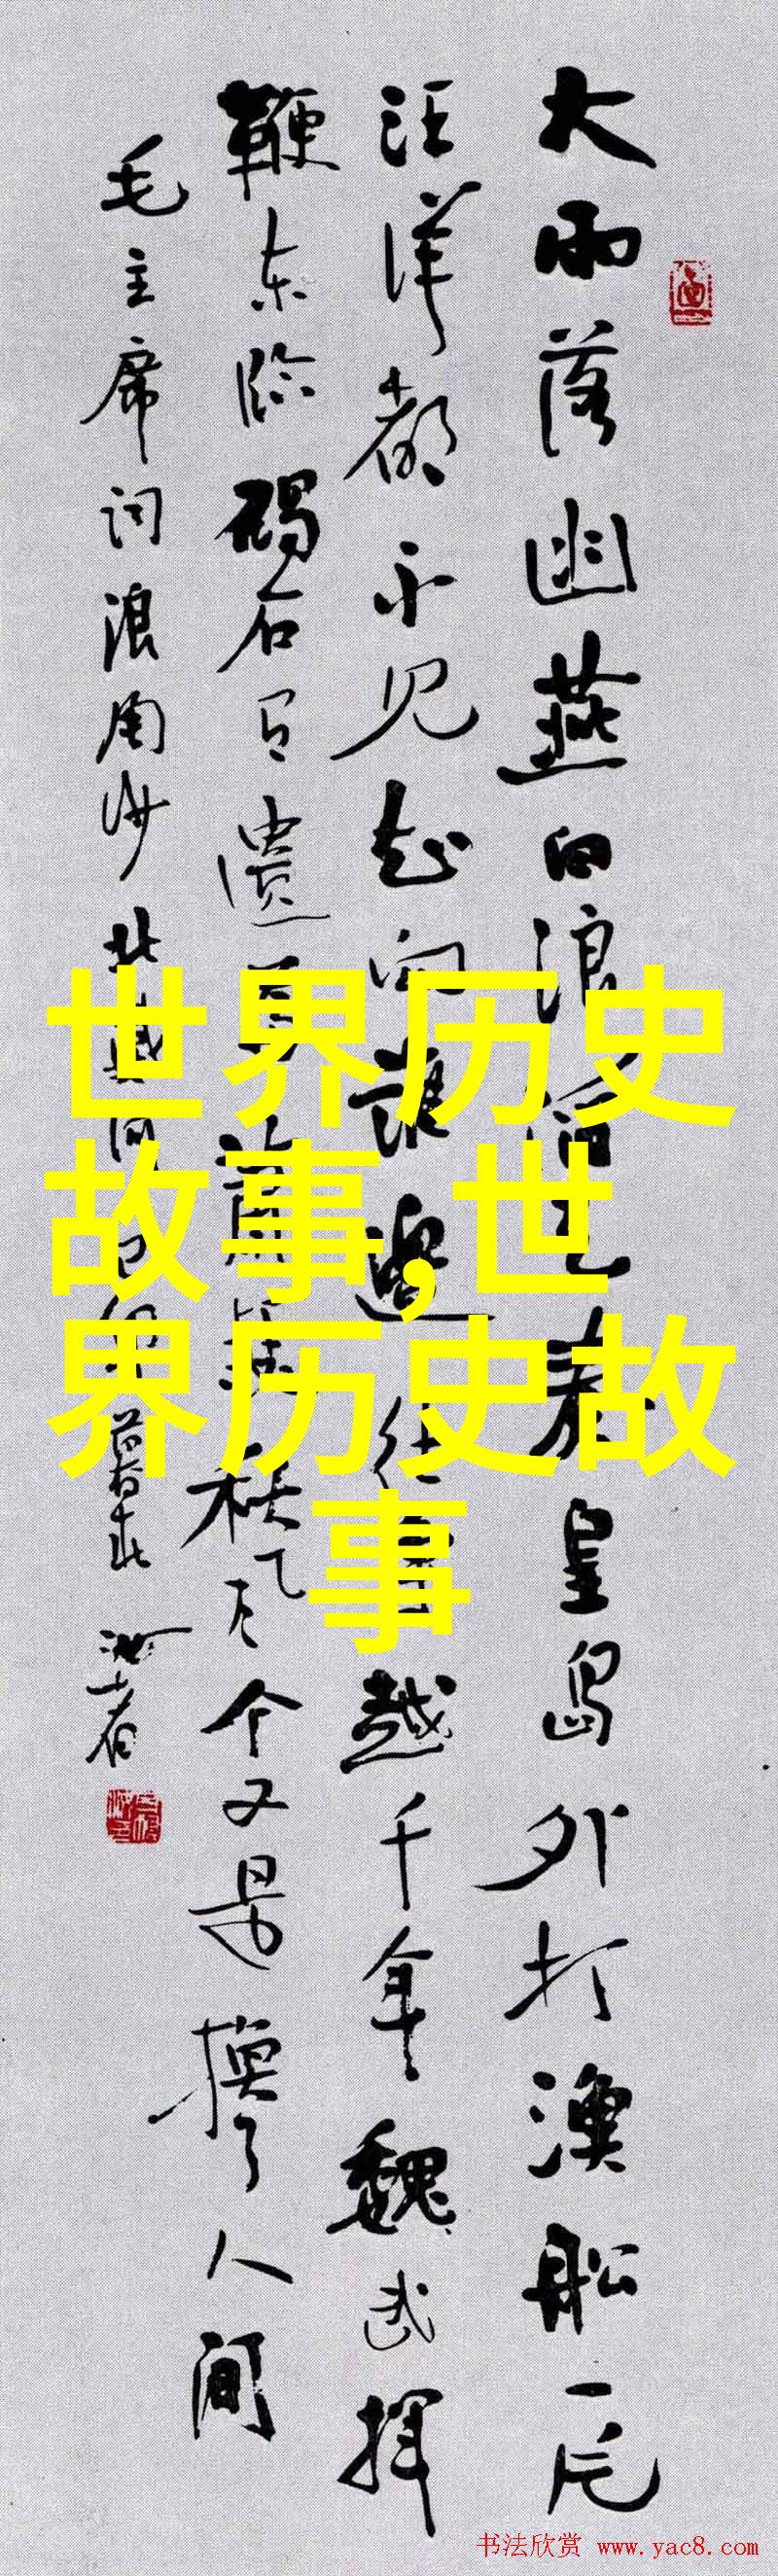 大雨落幽燕白浪滔天秦皇島外打漁船一片
汪洋都不见知向谁邊往事越千年魏武揮
鞭东临碣石有遗篇萧瑟秋风今又是換了人间
毛主席词浪淘沙北戴河
暮春
世界历史
故事,世
界历史故
事
书法欣赏 www.yac8.com